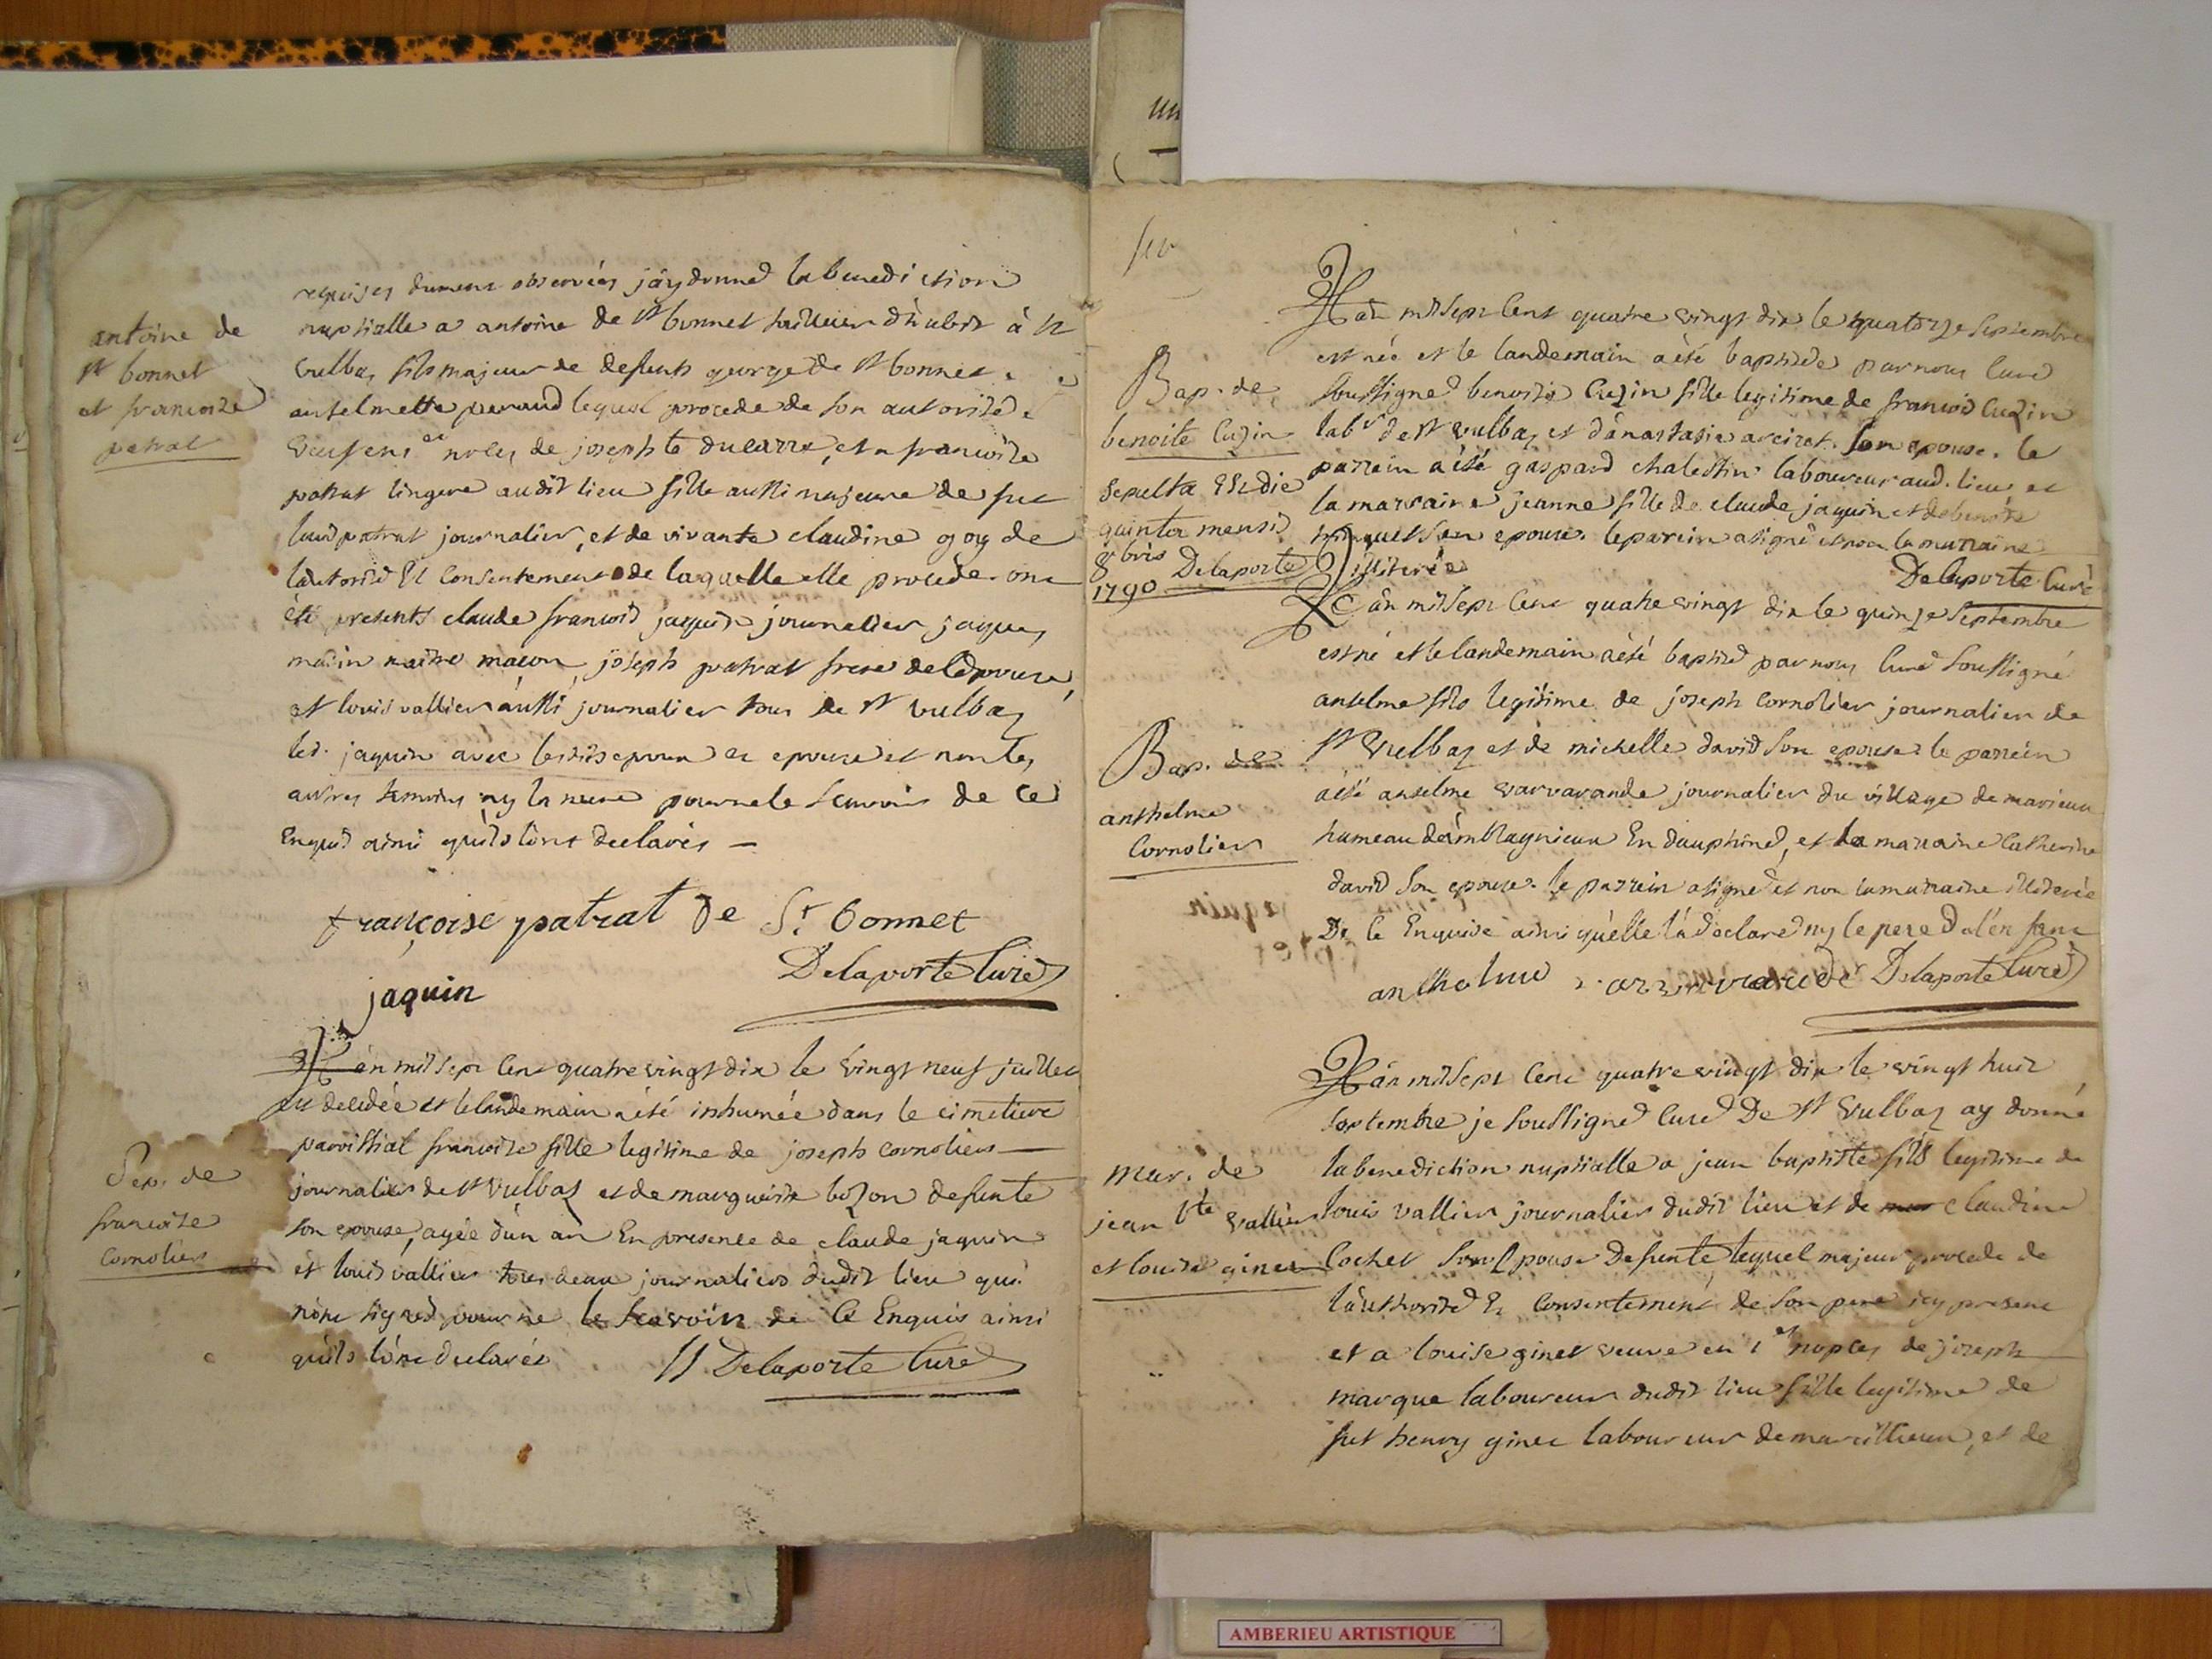 requises dument observées j'ay donné la benediction
antoine de
st bonnet
et francoise
patrat
nuptialle a antoine de st bonnet tailleur d'habit à st
vulbaz fils majeur de defunts george de st bonnet e
anselmette peraud lequel procede de son autorité e
veuf en noces de josephte ducarre, et a francoise
patrat lingere audit lieu fille aussi majeure de fut
patrat journalier, et de vivante claudine goy de
l'autorité Et consentement de laquelle elle procede ont
été presents claude francois jaquin journalier jaques
maître maçon joseph patrat frere de l'epouse,
et louis vallier aussi journalier tous de st vulbaz
led. jaquin avec lesdits epoux et epouse et non les
autres temoins ny la mere pour ne le scavoir de ce
Enquis ainsi qu'ils l'ont declarés —
françoise patrat De St bonnet
Delaporte Curé
jaquin
L'an mil sept cent quatre vingt dix le vingt neuf juillet
est decedée et le landemain a été inhumée dans le cimetiere
Sep. de
francoise
Cornolier
parroissial francoise fille legitime de joseph cornolier
journalier de st vulbaz et de marguerite bozon defunte
son epouse, agée d'un an En presence de claude jaquin
et louis vallier tous deux journaliers dudit lieu qui
n'ont signés pour ne le scavoir de ce Enquis ainsi
qu'ils l'ont declarés Delaporte Curé
L'an mil sept cent quatre vingt dix le quatorze septembre
est née et le landemain a été baptisée par nous curé
Bap. de
benoite Cuzin
soussigné benoite Cuzin fille legitime de francois Cuzin
labr de st vulbaz et d'anastasie arcizet son epouse. le
parrein a été gaspard chalestin laboureur aud. lieu et
la marraine jeanne fille de claude jaquin et de benoite
son epouse. le parein a signé et non la marraine
illiterée Delaporte Curé
sepulta Est die
quinta mensis
8bris Delaporte
1790
L'an mil sept cent quatre vingt dix le quinze septembre
est né et le landemain a été baptisé par nous curé soussigné
anselme fils legitime de joseph cornolier journalier de
Bap. de
anthelme
Cornolier
st vulbaz et de michelle david son epouse le parrein
a été anselme varvarande journalier du village de marieux
hameau d'amblagnieux En dauphiné, et la marraine Catherine
david son epouse. le parrein a signé et non la marraine illiterée
De ce Enquise ainsi qu'elle l'a declaré ny le pere de l'enfant
anthelme varvarande Delaporte Curé
L'an mil sept cent quatre vingt dix le vingt huit
septembre je soussigné Curé De st vulbaz ay donné
mar. de
jean bte vallier
et louise ginet
la benediction nuptialle a jean baptiste fils legitime de
louis vallier journalier dudit lieu et de claudine
Cochet son Epouse defunte lequel majeur procede de
l'authorité Et consentement de son pere icy present
et a louise ginet veuve en 1 nopces de joseph
marque laboureur dudit lieu fille legitime de
fut henry ginet laboureur de marcillieux, et de
AMBERIEU ARTISTIQUE